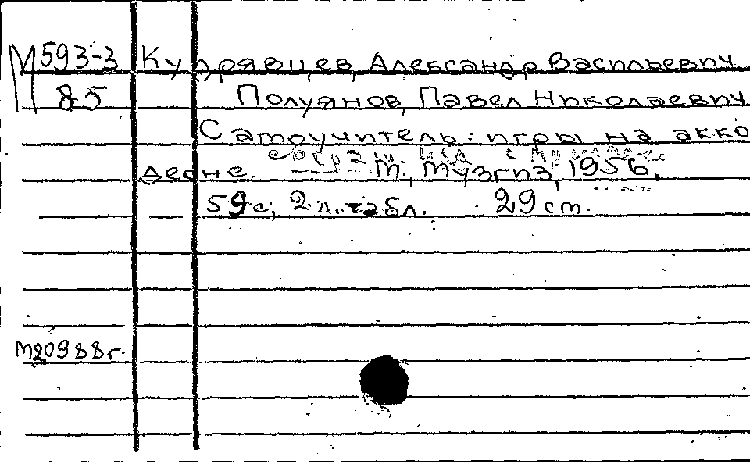 М 593-3 Кудрявцев, Александр Васильевич
85 Полуянов, Павел Николаевич
Самоучитель игры на акко
деоне М., Музгиз, 1956.
59 с; 2 л. табл. 29 см.
М20988г.